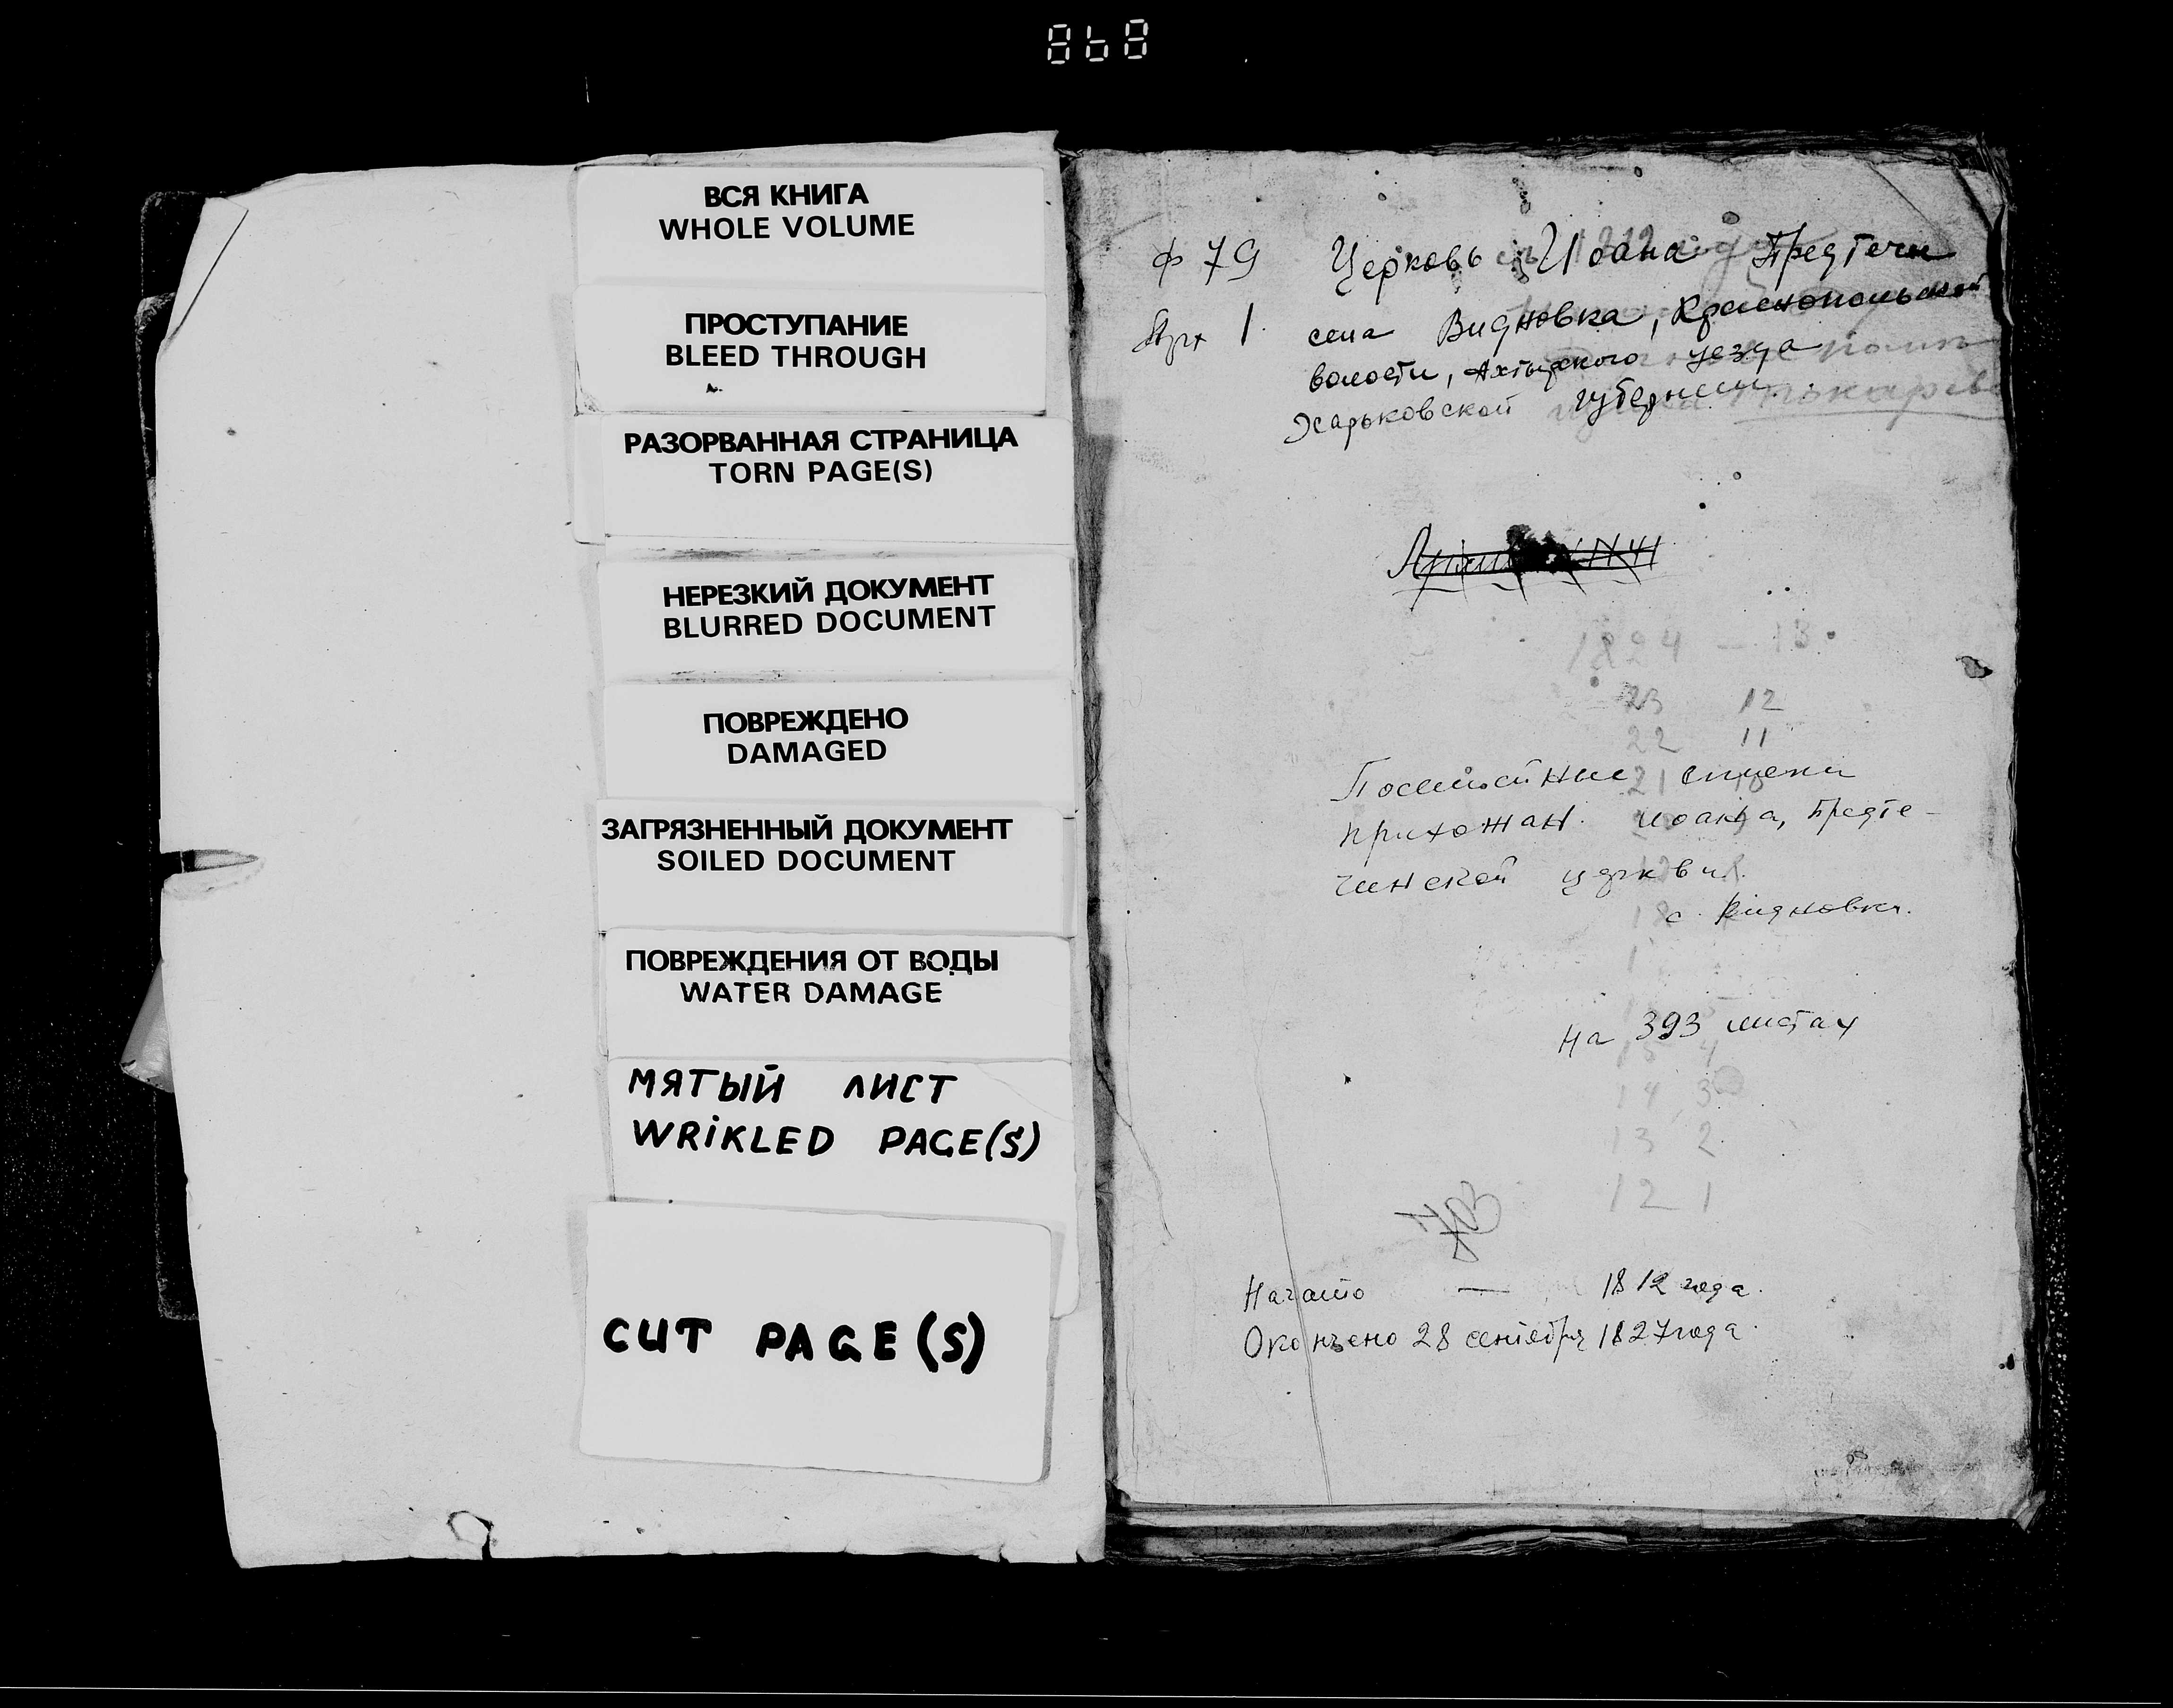 ВСЯ КНИГА
WHOLE VOLUME
ПРОСТУПАНИЕ
BLEED THROUGH
РАЗОРВАННАЯ СТРАНИЦА
TORN PAGE(S)
НЕРЕЗКИЙ ДОКУМЕНТ
BLURRED DOCUMENT
ПОВРЕЖДЕНО
DAMAGED
ЗАГРЯЗНЕННЫЙ ДОКУМЕНТ
SOILED DOCUMENT
ПОВРЕЖДЕНИЯ ОТ ВОДЫ
WATER DAMAGE
МЯТЫЙ ЛИСТ
WRIKLED PAGE(S)
CUT PAGE(S)
Ф 79 Церковь Иоана Предтечи
1 села Видновка, Краснопольской
волости, Ахтырского уезда
Харьковской губернии.
1824 – 13
23 12
22 11
21
списки
прихожан Иоанна, Предте-
чинской церкви
с. Видновка.
на 393 листах
15 4
14 3
13 2
12 1
703
Начато — 1812 года.
Окончено 28 сентября 1827 года.